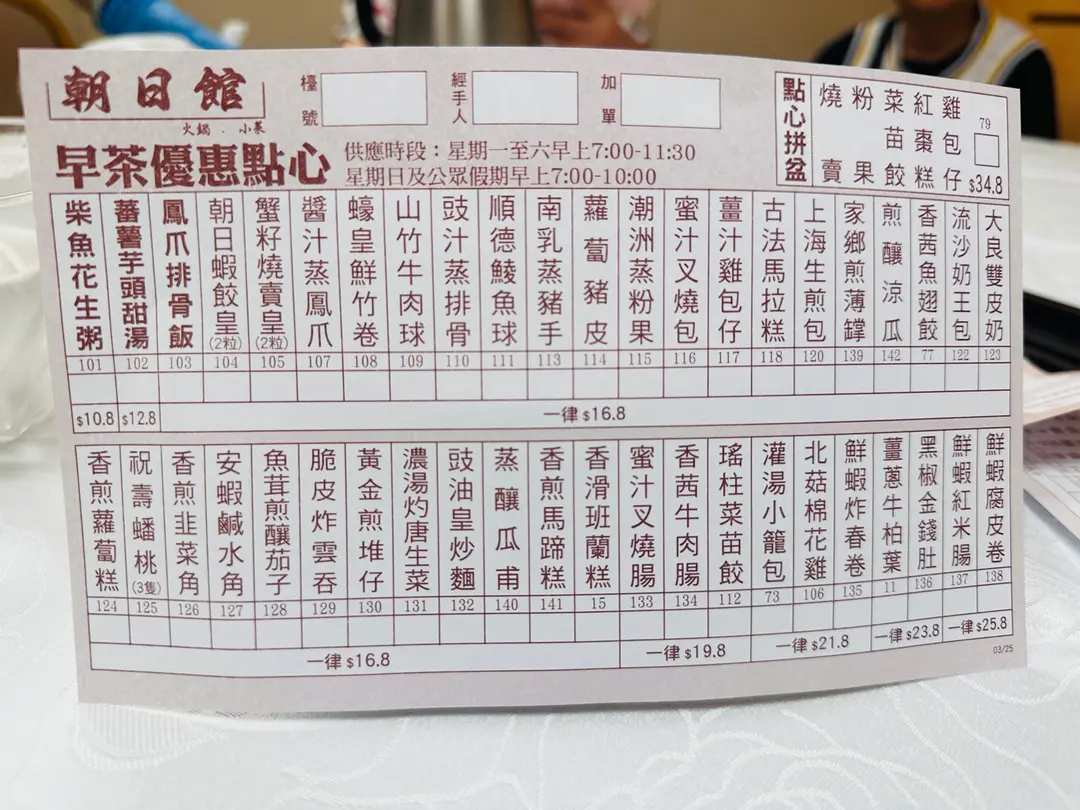 朝日館
火鍋．小菜
檯號
經手人
加單
點心拼盆
燒賣
粉果
菜苗餃
紅棗糕
雞包仔
79
$34.8
早茶優惠點心
供應時段：星期一至六早上7:00-11:30
星期日及公眾假期早上7:00-10:00
柴魚花生粥 101
蕃薯芋頭甜湯 102
鳳爪排骨飯 103
朝日蝦餃皇(2粒) 104
蟹籽燒賣皇(2粒) 105
醬汁蒸鳳爪 107
蠔皇鮮竹卷 108
山竹牛肉球 109
豉汁蒸排骨 110
順德鯪魚球 111
南乳蒸豬手 113
蘿蔔豬皮 114
潮洲蒸粉果 115
蜜汁叉燒包 116
薑汁雞包仔 117
古法馬拉糕 118
上海生煎包 120
家鄉煎薄罉 139
煎釀涼瓜 142
香茜魚翅餃 77
流沙奶王包 122
大良雙皮奶 123
$10.8
$12.8
一律 $16.8
香煎蘿蔔糕 124
祝壽蟠桃(3隻) 125
香煎韭菜角 126
安蝦鹹水角 127
魚茸煎釀茄子 128
脆皮炸雲吞 129
黃金煎堆仔 130
濃湯灼唐生菜 131
豉油皇炒麵 132
蒸釀瓜甫 140
香煎馬蹄糕 141
香滑班蘭糕 15
蜜汁叉燒腸 133
香茜牛肉腸 134
瑤柱菜苗餃 112
灌湯小籠包 73
北菇棉花雞 106
鮮蝦炸春卷 135
薑蔥牛柏葉 11
黑椒金錢肚 136
鮮蝦紅米腸 137
鮮蝦腐皮卷 138
一律 $16.8
一律 $19.8
一律 $21.8
一律 $23.8
一律 $25.8
03/25